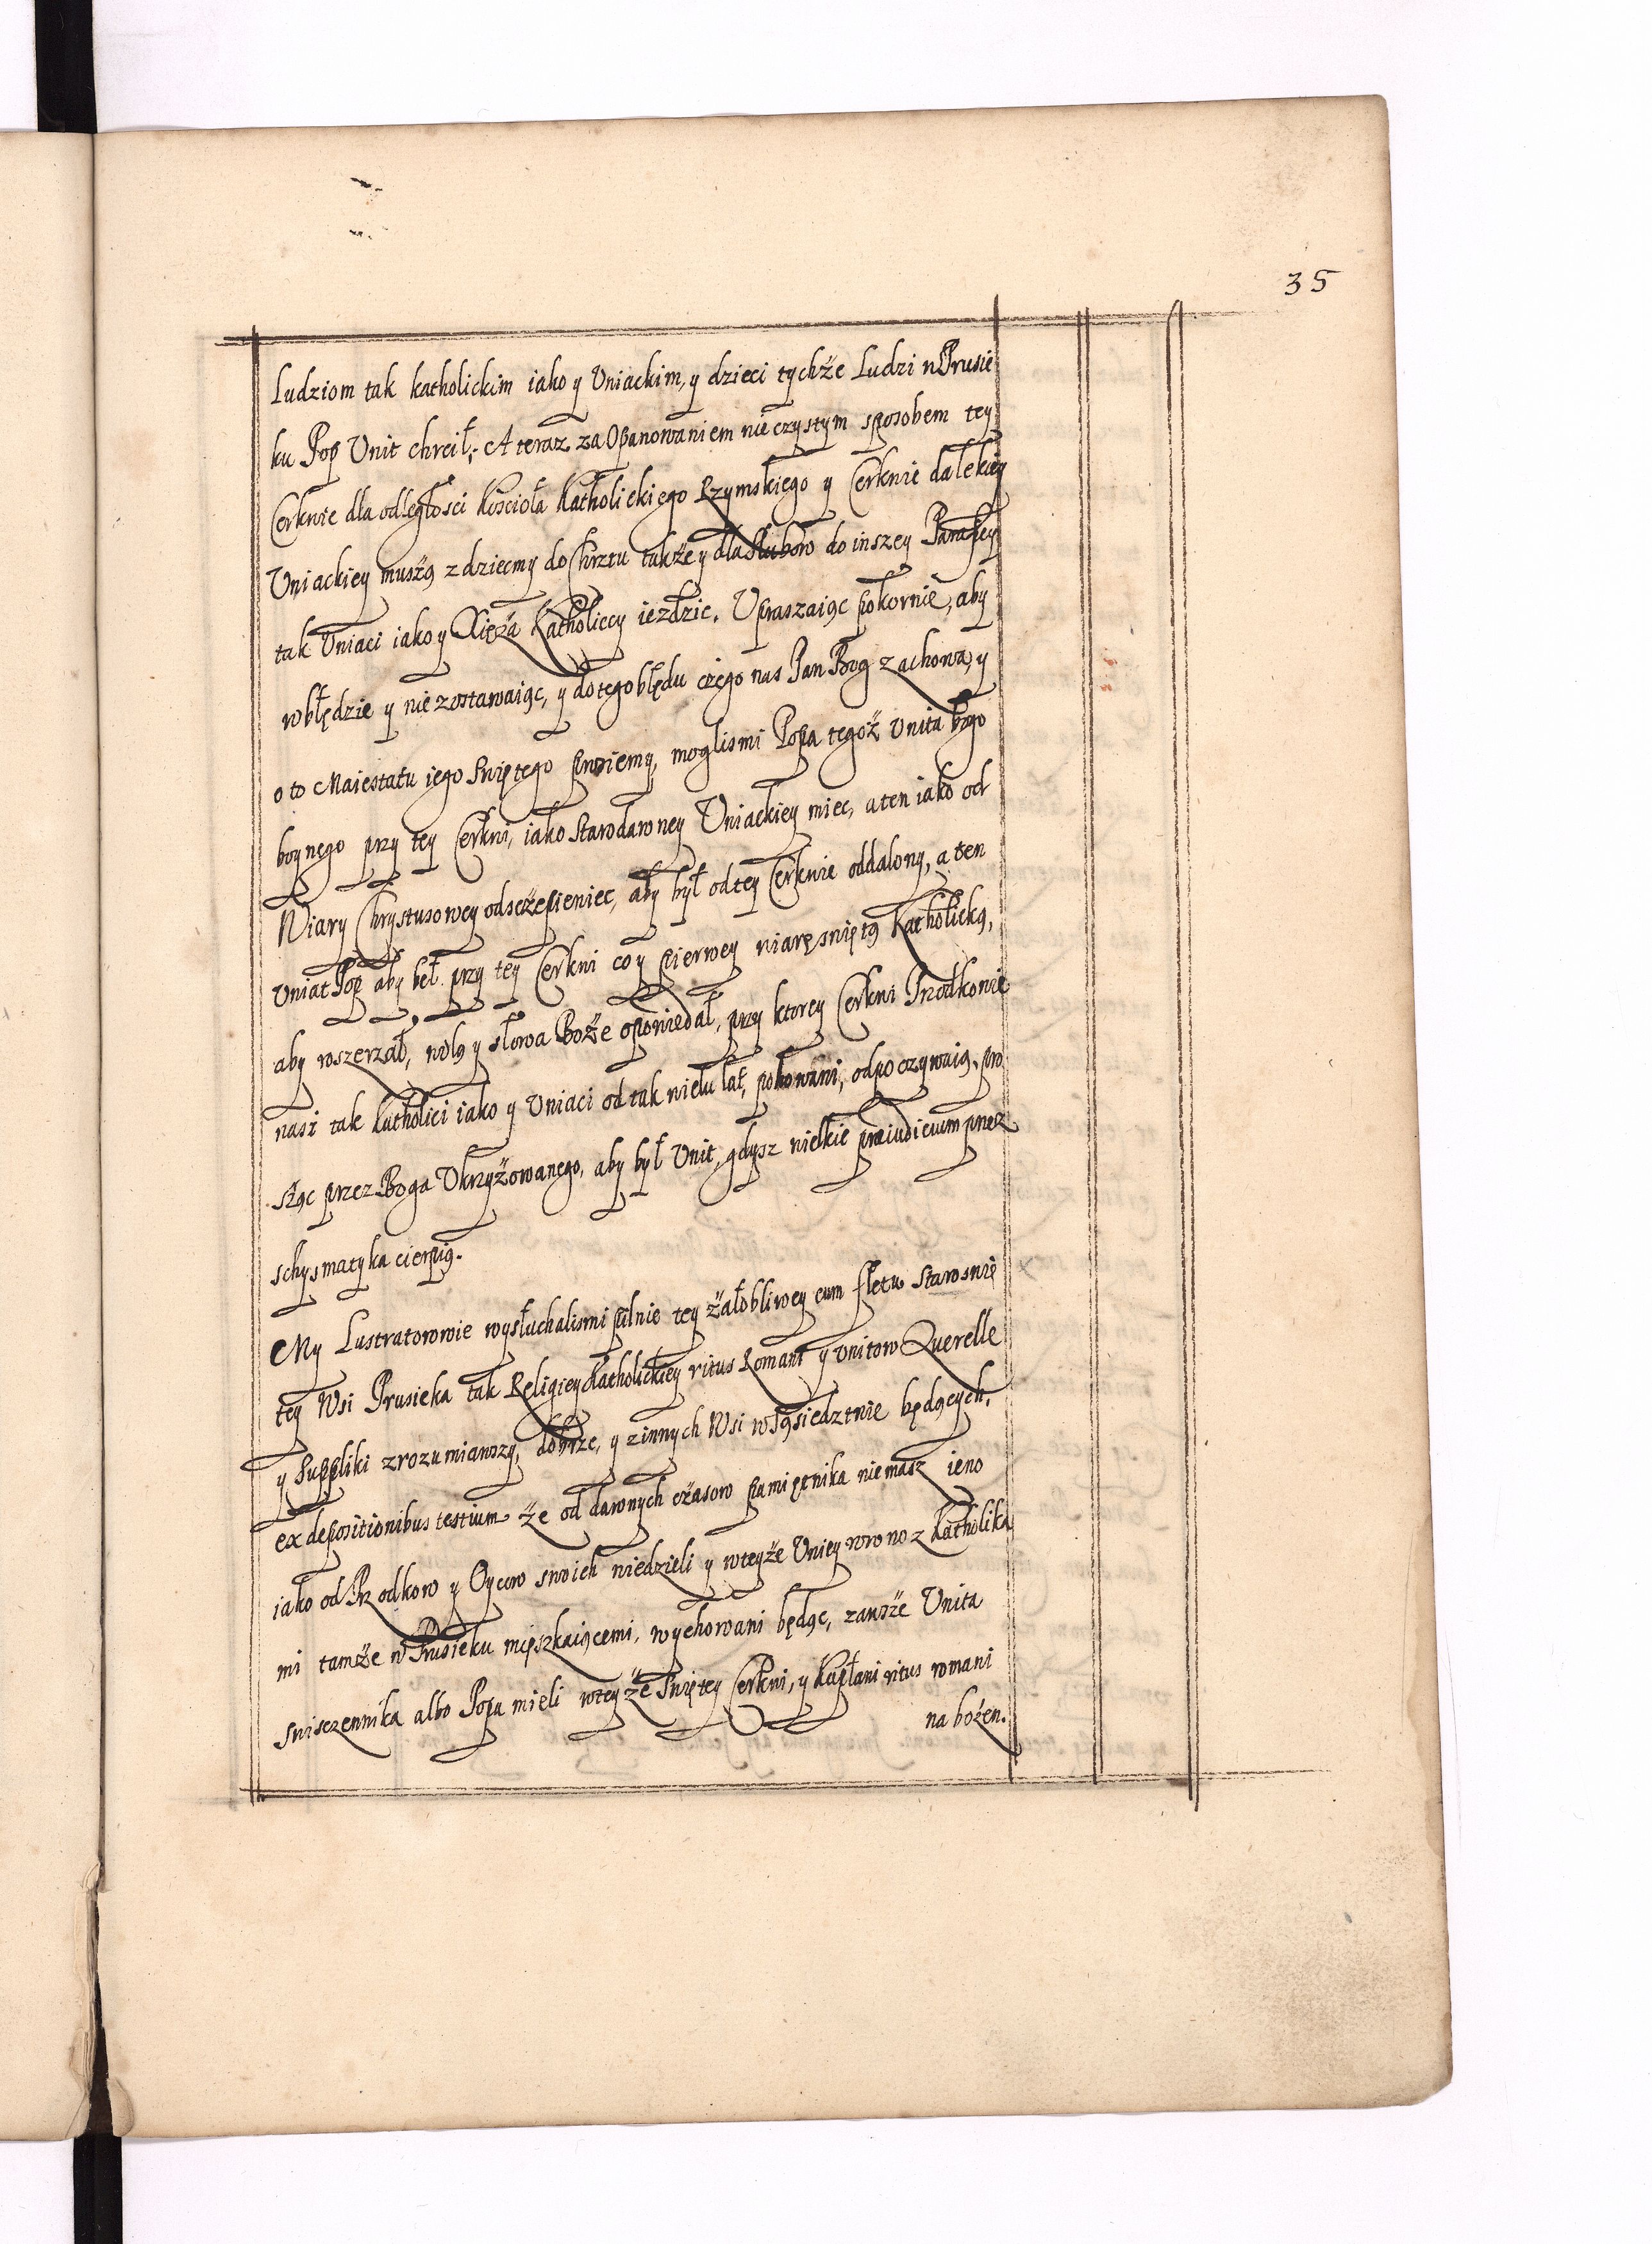 35
Ludziom tak katholickim iako y Vniackim, y dzieci tychże Ludzi wPrusie
ku Pop Vnit chrcił, A teraz za Opanowaniem nieczystym sposobem tey
Cerkwie dla odległosci Koscioła Katholickiego Rzymskiego y Cerkwie dalekiey
Vniackiey muszą z dziecmy do Chrztu także y dla Slubow do inszey Parafiey
tak Vniaci iako y Xięża Katholiccy iezdzic. Vpraszaiąc pokornie, aby
wbłędzie y nie zostawaiąc, y do tego błędu czego nas Pan Bog zachowa, y
o to Maiestatu iego Swiętego prosiemy, moglismi Popa tegoż Vnita bogo
boynego przy tey Cerkwi, iako Starodawney Vniackiey miec, a ten iako od
Wiary Chrystusowey odszczepieniec, aby był od tey Cerkwie oddalony, a ten
Vniat Pop aby beł przy tey Cerkwi co y pierwey wiarę swiętą Katholicką,
aby rozszerzał, wolą y słowa Boże opowiedał, przy ktorey Cerkwi Przodkowie
nasi tak Katholici iako y Vniaci od tak wielu lat, pochowani, odpoczywaią, pro
sząc przez Boga Vkrzyżowanego, aby był Vnit, gdysz wielkie praeiudicium przez
schysmatyka cierpią.
My Lustratorowie wysłuchalismi pilnie tey żałobliwey cum fletu Starosnię
tey Wsi Prusieka tak Religiey Katholickiey ritus Romani y vnitow Querelle
y Suppliki zrozumiawszy, dobrze, y zinnych Wsi wsąsiedztwie będących,
ex depositionibus testium że od dawnych czasow pamiętnika niemasz ieno
iako od Przodkow y Oycow swoich wiedzieli y wteyże Vniey wrowno z Katholika
mi tamże w Prusieku mięszkaiącemi, wychowani będąc, zawsze Vnita
swisczennika albo Popa mieli wteyże Swiętey Cerkwi, y Kapłani ritus romani
na bożen.